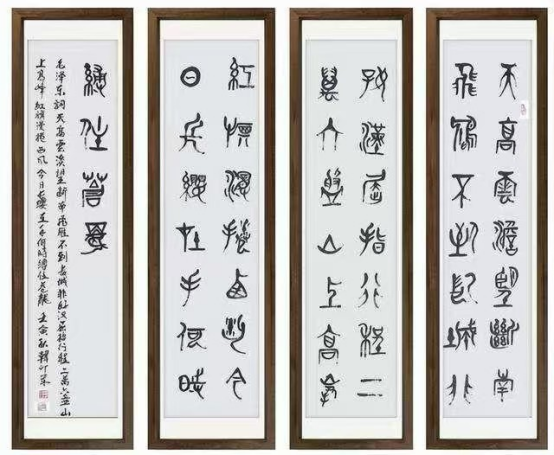 天高雲澹望斷南
飛鴈不到長城非
好漢屈指行程二
萬六盤山上高峯
紅旗漫捲西風今
日長纓在手何時
縛住蒼龍
毛泽东詞天高雲淡望斷南飛雁不到長城非好汉屈指行程二萬六盘山
上高峰紅旗漫捲西風今日長纓在手何時縛住苍龍壬寅秋